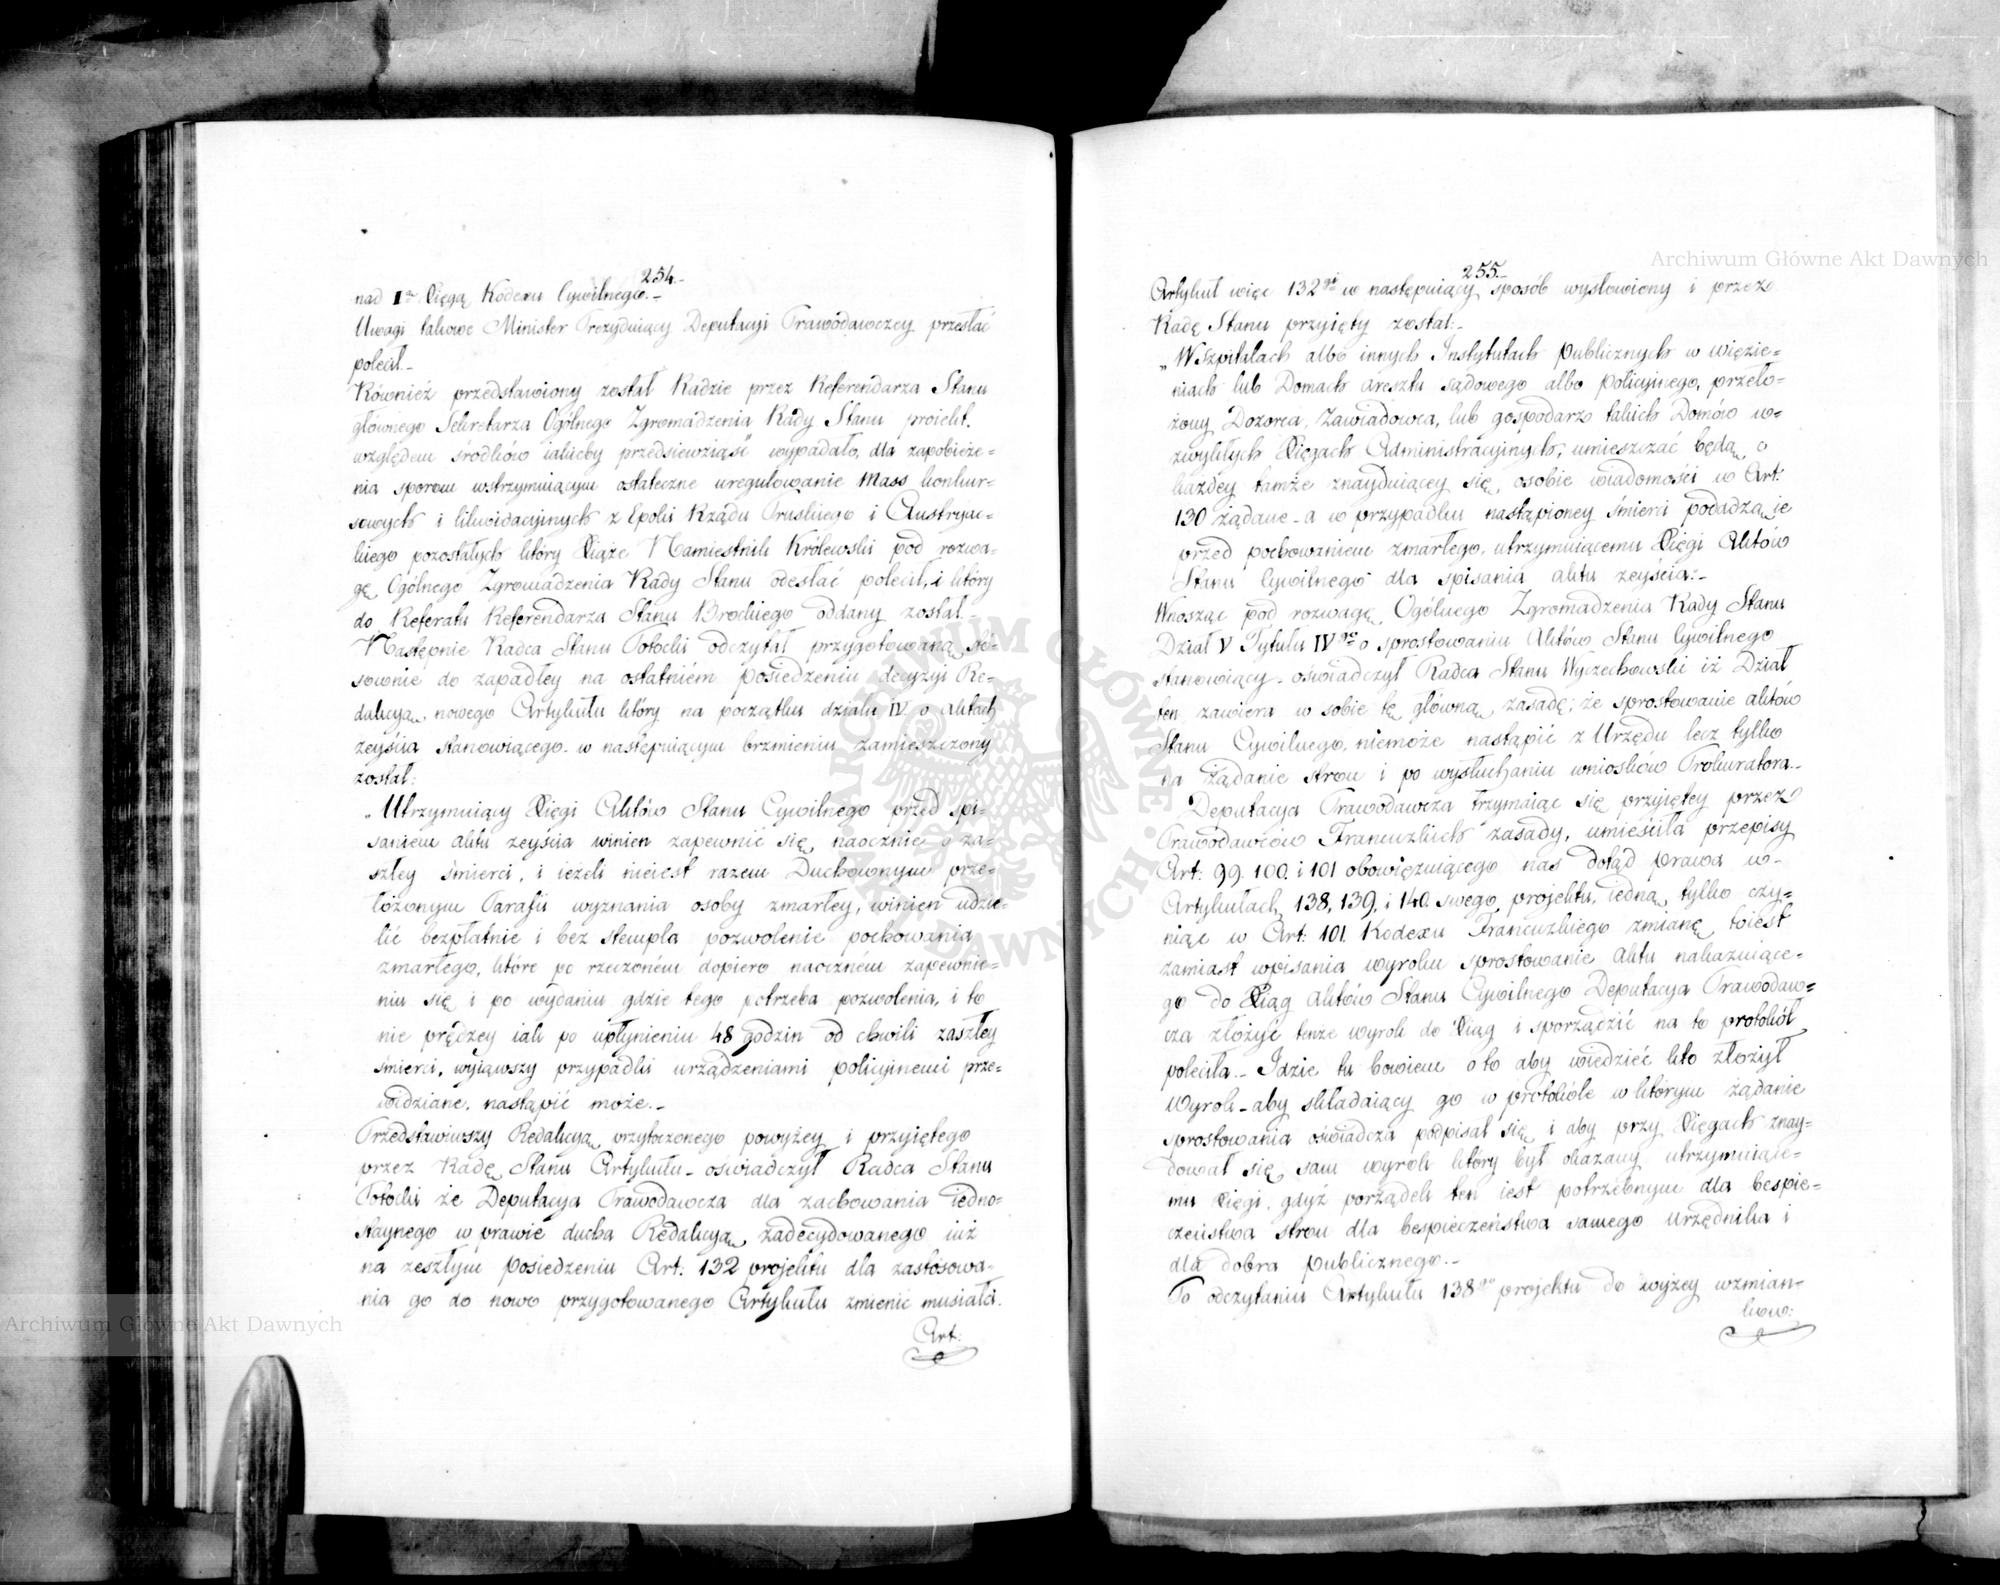 254.-
nad I.ą Xięgą Kodexu Cywilnego.-
Uwagi takowe Minister Prezyduiący Deputacyi Prawodawczey przesłać
polecił.-
Również przedstawiony został Radzie przez Referendarza Stanu
głównego Sekretarza Ogólnego Zgromadzenia Rady Stanu proiekt.
względem środków iakieby przedsiewziąść wypadało, dla zapobieże=
nia sporom wstrzymuiącym ostateczne uregulowanie Mass konkur=
sowych i likwidacyinych z Epoki Rządu Pruskiego i Austryac=
kiego pozostałych który Xiąże Namiestnik Królewski pod rozwa=
gę Ogólnego Zgromadzenia Rady Stanu odesłać polecił, i który
do Referatu Referendarza Stanu Brockiego oddany został.-
Następnie Radca Stanu Potocki odczytał przygotowaną sto=
sownie do zapadłey na ostatniém posiedzeniu decyzyi Re=
dakcyą, nowego Artykułu który na początku działu IV o aktach
zeyścia stanowiącego w następuiącym brzmieniu zamieszczony
został:
„Utrzymuiący Xięgi Aktów Stanu Cywilnego przed spi=
saniem aktu zeyścia winien zapewnić się naocznie o za=
szłey śmierci, i ieżeli nieiest razem Duchownym prze=
łożonym Parafii wyznania osoby zmarłey, winien udzie=
lić bezpłatnie i bez stempla pozwolenie pochowania
zmarłego, które po rzeczoném dopiero naoczném zapewnie=
niu się i po wydaniu gdzie tego potrzeba pozwolenia, i to
nie prędzey iak po upłynieniu 48 godzin od chwili zaszłey
śmierci, wyiąwszy przypadki urządzeniami policyinemi prze=
widziane, nastąpić może.-
Przedstawiwszy Redakcyą przytoczonego powyżey i przyiętego
przez Radę Stanu Artykułu - oświadczył Radca Stanu
Potocki że Deputacya Prawodawcza dla zachowania iedno=
staynego w prawie ducha Redakcyą zadecydowanego iuż
na zeszłym posiedzeniu Art: 132 projektu dla zastosowa=
nia go do nowo przygotowanego Artykułu zmienić musiała.
Art:
255.-
Artykuł więc 132gi w następuiący sposób wysłowiony i przez
Radę Stanu przyięty został:-
„W Szpitalach albo innych Instytutach publicznych w więzie=
niach lub Domach aresztu sądowego albo policyinego, przeło=
żony Dozorca, Zawiadowca, lub gospodarz takich Domów w=
zwykłych Xięgach Administracyinych, umieszczać będą o
każdey tamże znayduiącey się osobie wiadomości w Art:
130 żądane - a w przypadku nastąpioney śmierci podadzą je
przed pochowaniem zmarłego, utrzymuiącemu Xięgi Aktów
Stanu Cywilnego dla spisania aktu zeyścia:-
Wnosząc pod rozwagę Ogólnego Zgromadzenia Rady Stanu
Dział V Tytułu IVgo o sprostowaniu Aktów Stanu Cywilnego
stanowiący - oświadczył Radca Stanu Wyczechowski iż Dział
ten zawiera w sobie tę główną zasadę; że sprostowanie aktów
Stanu Cywilnego, niemoże nastąpić z Urzędu lecz tylko
na żądanie stron i po wysłuchaniu wniosków Prokuratora.-
Deputacya Prawodawcza trzymaiąc się przyiętey przez
Prawodawców Francuzkich zasady, umieściła przepisy
Art: 99. 100. i 101 obowięzuiącego nas dotąd prawa w-
Artykułach 138, 139, i 140. swego projektu, iedną tylko czy=
niąc w Art: 101. Kodexu Francuzkiego zmianę toiest
zamiast wpisania wyroku sprostowanie Aktu nakazuiące=
go do Xiąg Aktów Stanu Cywilnego Deputacya Prawodaw=
cza złożyć tenże wyrok do Xiąg i sporządzić na to protokół
poleciła.- Idzie tu bowiem o to aby wiedzieć kto złożył
Wyrok - aby składaiący go w protokóle w którym żądanie
sprostowania oświadcza podpisał się i aby przy Xięgach znay=
dował się sam wyrok który był okazany utrzymuiące=
mu Xięgi, gdyż porządek ten iest potrzebnym dla bespie=
czeństwa stron dla bespieczeństwa samego Urzędnika i
dla dobra publicznego.-
Po odczytaniu Artykułu 138go projektu do wyżey wzmian=
kow:
Archiwum Główne Akt Dawnych
Archiwum Główne Akt Dawnych
ARCHIWUM GŁÓWNE AKT DAWNYCH